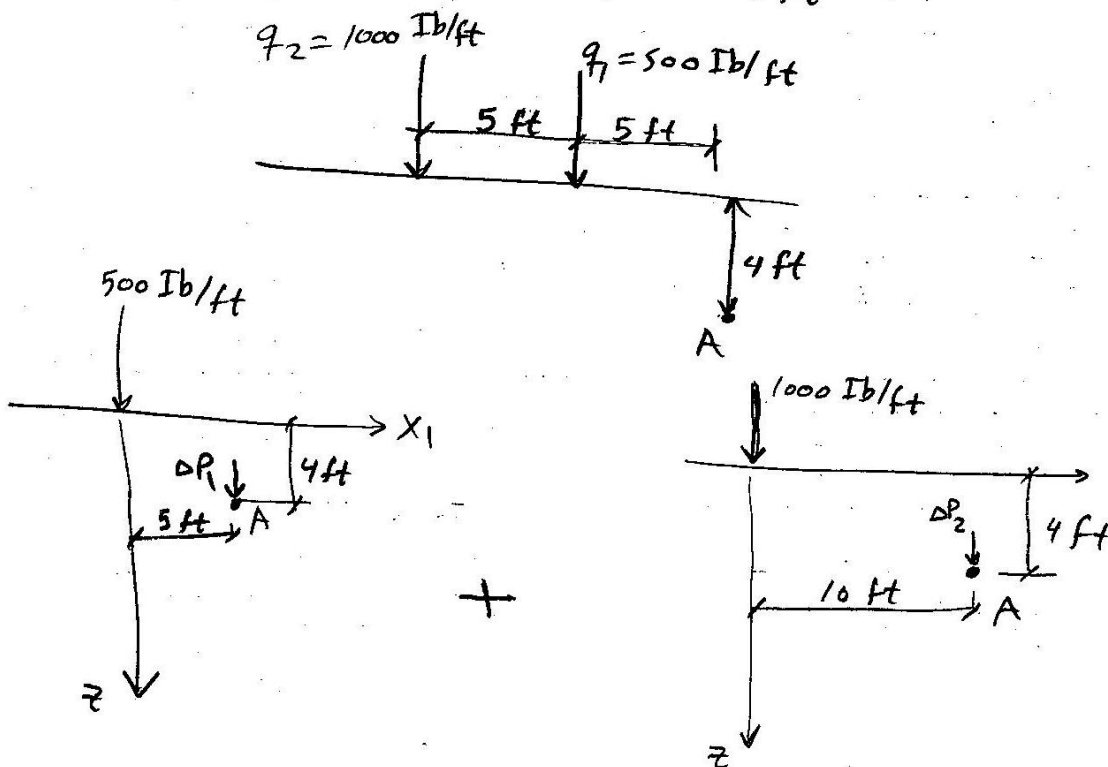 q₂ = 1000 Ib/ft
q₁ = 500 Ib/ft
5 ft
5 ft
4 ft
A
500 Ib/ft
X₁
ΔP₁
4 ft
5 ft
A
Z
+
1000 Ib/ft
ΔP₂
4 ft
10 ft
A
Z